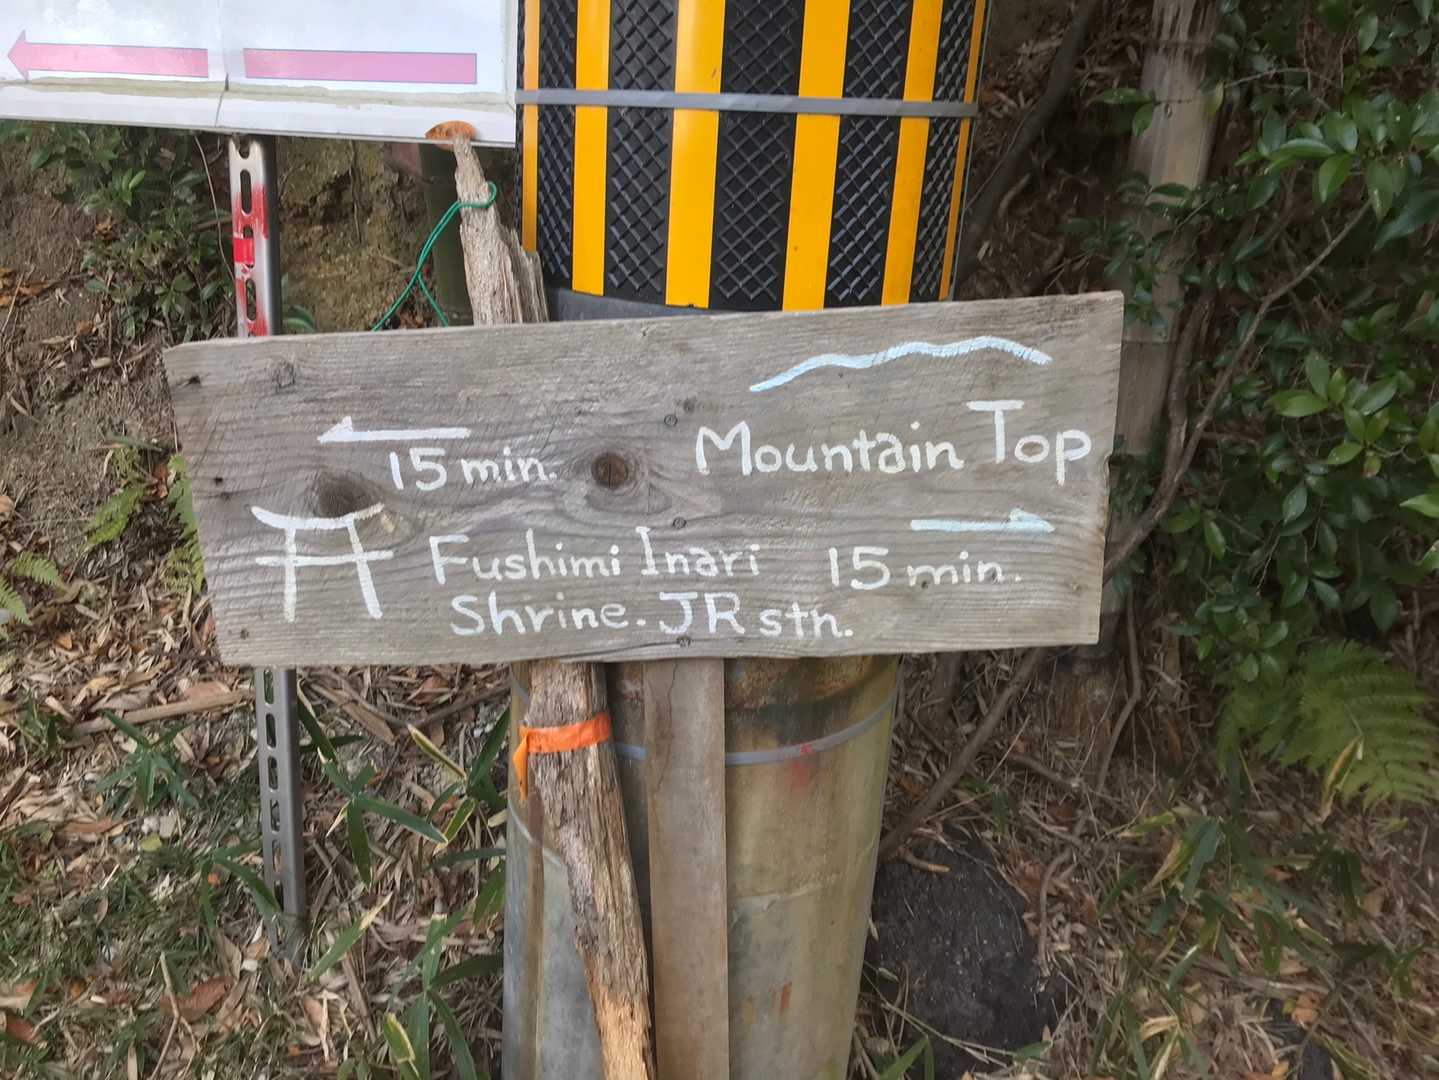 15 min.
Fushimi Inari
Shrine. JR stn.
Mountain Top
15 min.